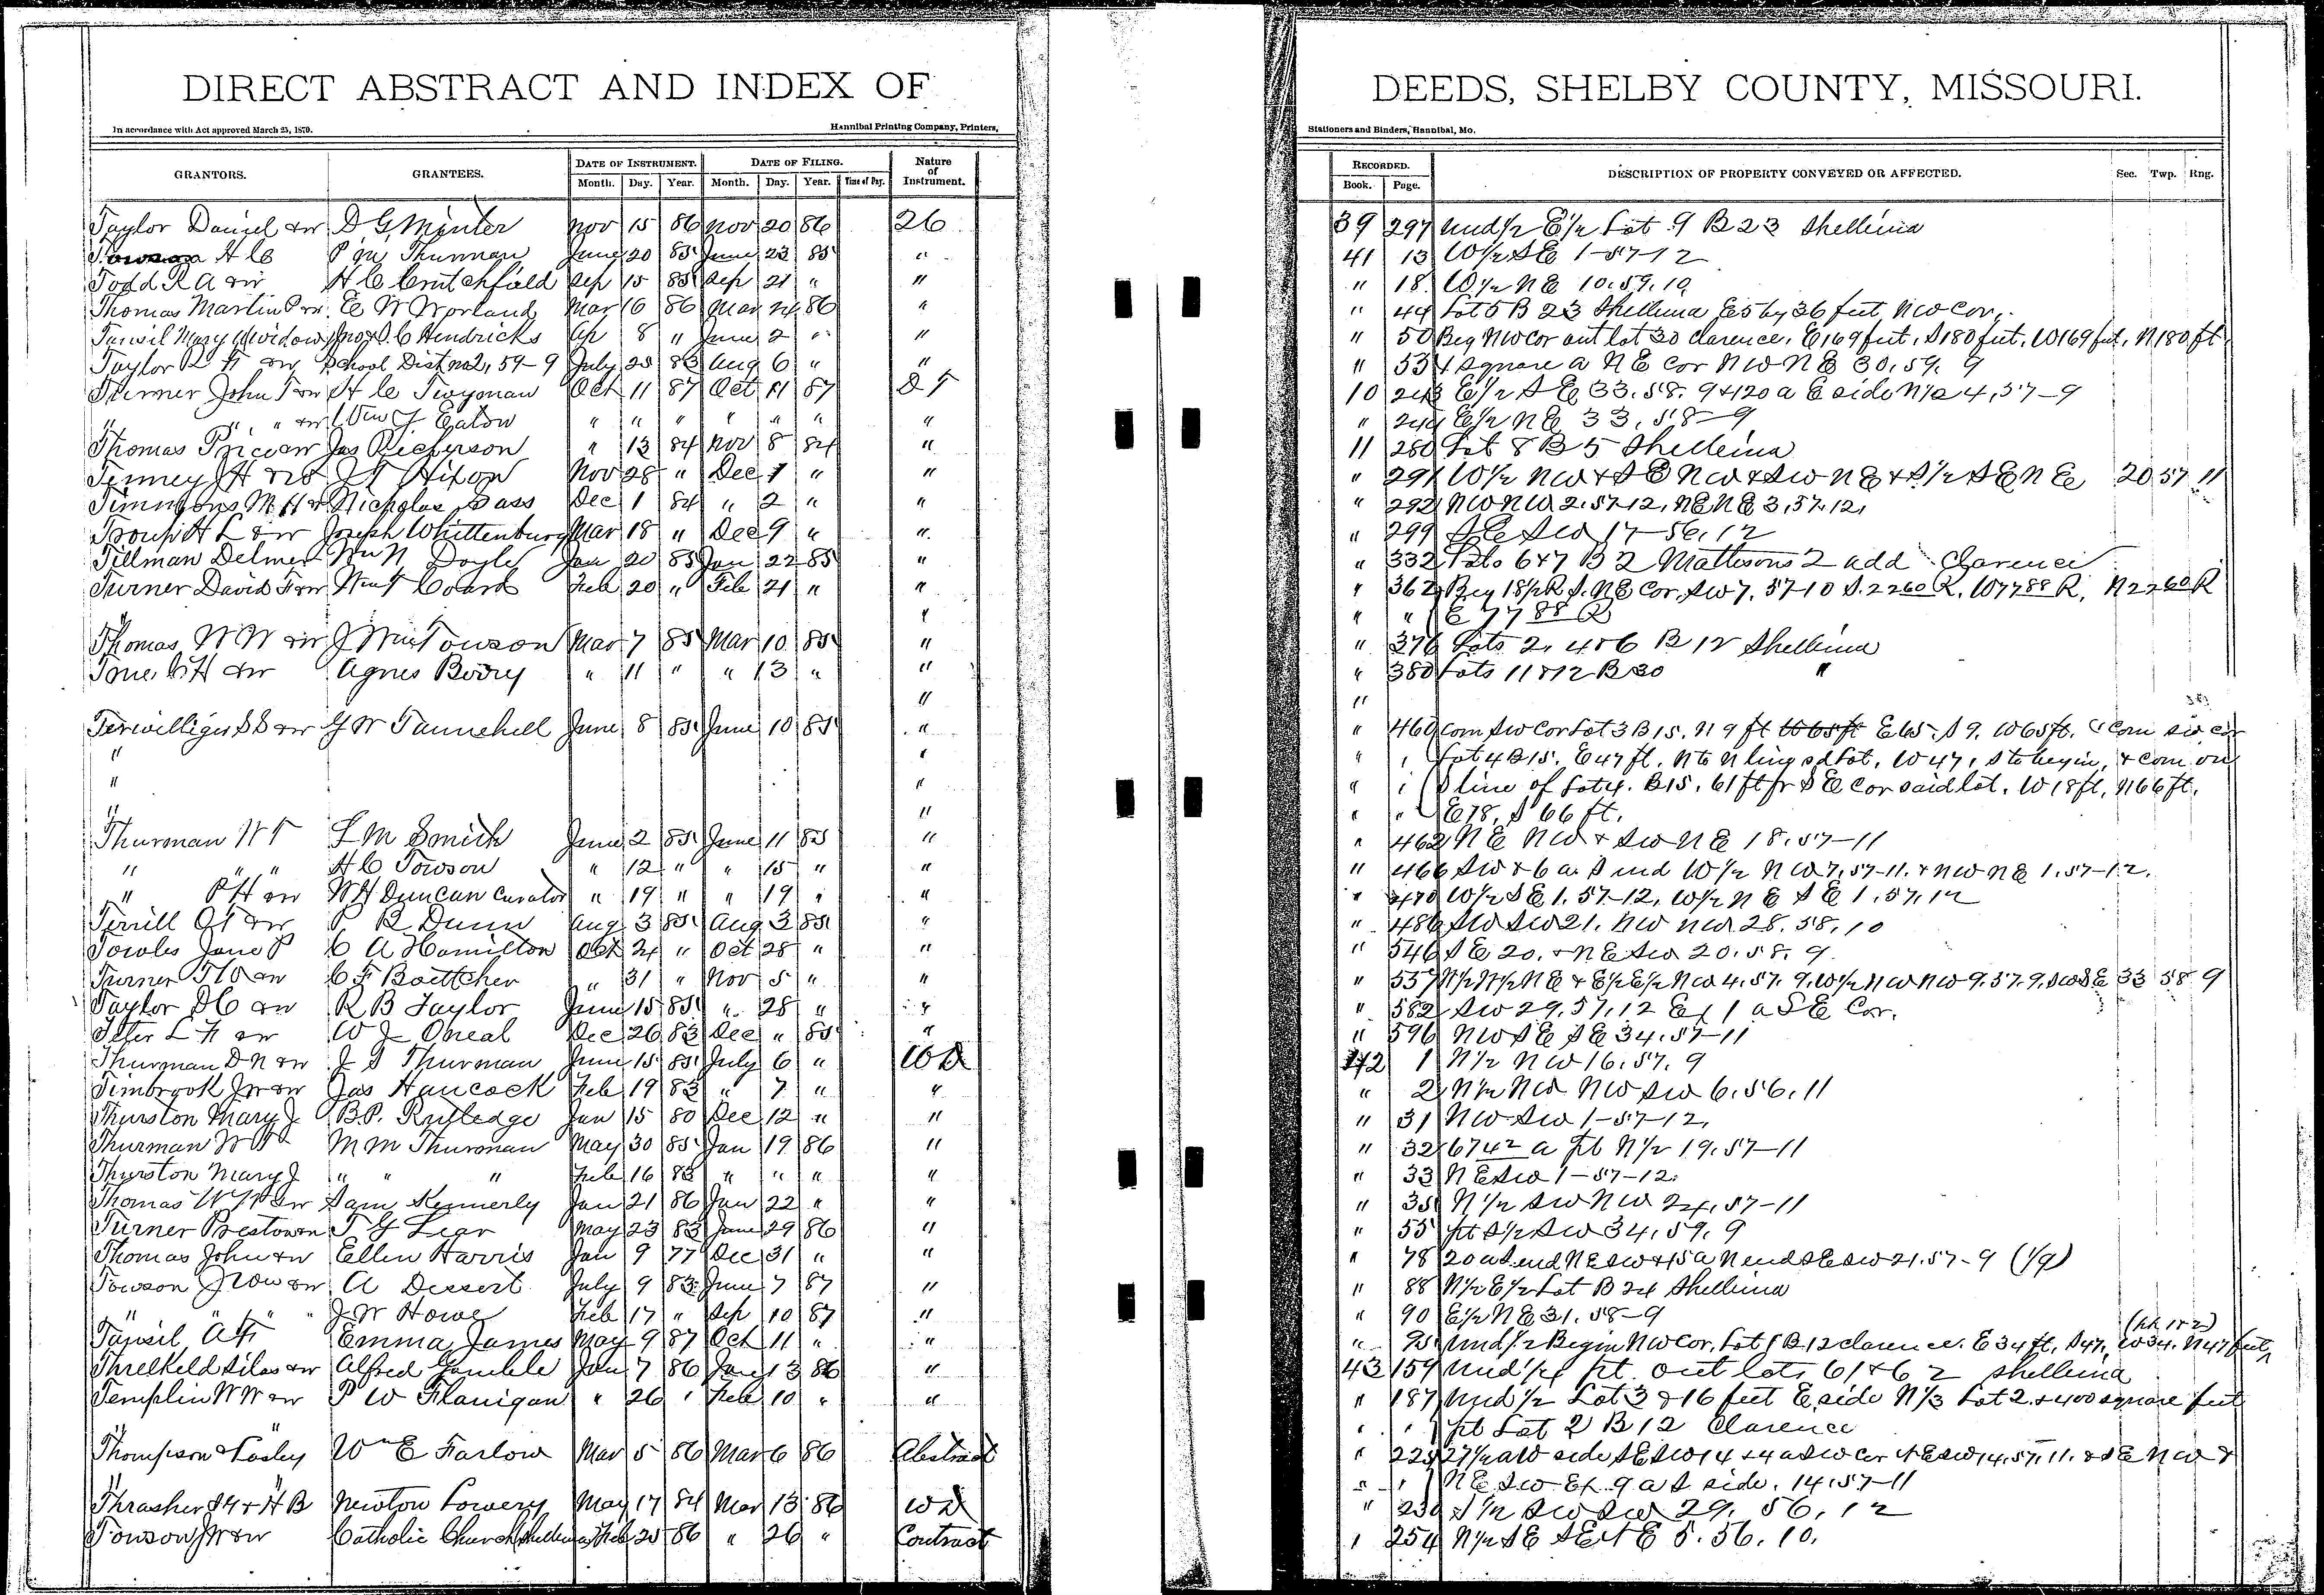 DIRECT ABSTRACT AND INDEX OF
In accordance with Act approved March 25, 1870. Hannibal Printing Company, Printers,
GRANTORS. GRANTEES. DATE OF INSTRUMENT. DATE OF FILING. Nature of Instrument.
Month. Day. Year. Month. Day. Year. Time of Day.
Taylor Daniel & w D G Minter Nov 15 86 Nov 20 86 26
H C P M Thurman June 20 85 June 23 85 "
Todd R A & w H C Crutchfield Sep 15 85 Sep 21 " "
Thomas Martin P & w E W Worland Mar 16 86 Mar 24 86 "
Tansil Mary A widow Jno & D C Hendricks Ap 8 " June 2 " "
Taylor R F & w School Dist no 2, 59-9 July 28 83 Aug 6 " "
Turner John T & w H C Twyman Oct 11 87 Oct 11 87 D T
" " " & w Wm J Eaton " " " " " " "
Thomas Price & w Jas Rickerson " 13 84 Nov 8 84 "
Tenney J H J T Hixon Nov 28 " Dec 1 " "
Timmons M H & Nicholas Bass Dec 1 84 " 2 " "
Troup H L & w Joseph Whittenburg Mar 18 " Dec 9 " "
Tillman Delmer Wm N Doyle Jan 20 85 Jan 22 85 "
Turner David F & w Wm T Coard Feb 20 " Feb 21 " "
"
Thomas W W & w J Wm Towson Mar 7 85 Mar 10 85 "
C H & w Agnes Berry " 11 " " 13 " "
"
Terwilliger S S & w G W Tannehill June 8 85 June 10 85 "
" "
" "
" "
Thurman W T L M Smith June 2 85 June 11 85 "
" " " H C Towson " 12 " " 15 " "
" P H & w W H Duncan Curator " 19 " " 19 " "
Terrill & w P R Dunn Aug 3 85 Aug 3 85 "
Towles Jane P C A Hamilton Oct 24 " Oct 28 " "
Turner & w C F Boettcher " 31 " Nov 5 " "
Taylor D C & w R B Taylor June 15 85 " 28 " "
L F & w W J Oneal Dec 26 83 Dec " 85 "
Thurman D N & w J S Thurman June 15 85 July 6 " W D
Timbrook J & w Jas Hancock Feb 19 83 " 7 " "
Thurston Mary J B.P. Rutledge Jan 15 80 Dec 12 " "
Thurman W T M M Thurman May 30 85 Jan 19 86 "
Thurston Mary J " " " Feb 16 83 " " " "
Thomas W W & w Sam Kennerly Jan 21 86 Jan 22 " "
Turner Preston & w T G Lear May 23 83 June 29 86 "
Thomas John & w Ellen Harris Jan 9 77 Dec 31 " "
Towson J Wm & w A Dessert July 9 83 June 7 87 "
" " " J W Howe Feb 17 " Sep 10 87 "
Tansil A F Emma James May 9 87 Oct 11 " "
Threlkeld Silas & w Alfred Gamble Jan 7 86 Jan 13 86 "
Templin W W & w P W Flanigan " 26 " Feb 10 " "
Thompson & Losley Wm E Farlow Mar 5 86 Mar 6 86 Abstract
Thrasher & H B Newton Lowery May 17 84 Mar 13 86 W D
Towson J W & w Catholic Church Shelbina Feb 25 86 " 26 " Contract
DEEDS, SHELBY COUNTY, MISSOURI.
Stationers and Binders, Hannibal, Mo.
RECORDED. DESCRIPTION OF PROPERTY CONVEYED OR AFFECTED. Sec. Twp. Rng.
Book. Page.
39 297 Und 1/2 E 1/2 Lot 9 B 23 Shelbina
41 13 W 1/2 SE 1-57-12
" 18 W 1/2 NE 10.59.10
" 44 Lot 5 B 23 Shelbina Ex 5 by 36 feet, NW cor.
" 50 Beg NW Cor out lot 30 Clarence, E 169 feet, S 180 feet, W 169 feet, N 180 ft
" 53 4 square a NE cor NW NE 30, 59. 9
10 243 E 1/2 SE 33.58.9 & 120 a E side N 1/2 4,57-9
" 244 E 1/2 NE 33, 58-9
11 280 Lot 8 B 5 Shelbina
" 291 W 1/2 NW & SE NW & SW NE & S 1/2 SE NE 20 57 11
" 292 NW NW 2.57-12, NE NE 3,57.12,
" 299 SE SW 17-56.12
" 332 Lots 6 & 7 B 2 Mattesons 2 add Clarence
" 362 Beg 18 1/2 R S. NE Cor. SW 7, 57-10 S. 22 60 R, W 77 88 R, N 22 60 R
" " E 77 88 R
" 376 Lots 2, 4 & 6 B 12 Shelbina
" 380 Lots 11 & 12 B 30 "
"
" 460 Com SW Cor Lot 3 B 15. N 9 ft W 65 ft E 65. S 9. W 65 ft. & Com SW cor
" " Lot 4 B 15. E 47 ft. N to N line sd Lot, W 47, S to begin, & com on
" " S line of Lot 4. B 15, 61 ft fr SE Cor said lot. W 18 ft, N 66 ft,
" " E 18, S 66 ft.
" 462 NE NW & SW NE 18.57-11
" 466 SW & 6 a. S end W 1/2 NW 7,57-11. & NW NE 1.57-12.
" 470 W 1/2 SE 1.57-12, W 1/2 NE SE 1.57.12
" 486 SW SW 21. NW NW 28. 58.10
" 546 SE 20. & NE SW 20.58.9.
" 557 N 1/2 NE & E 1/2 E 1/2 NW 4.57.9, W 1/2 NW NW 9.57.9, SW SE 33 58 9
" 582 SW 29,57,12 Ex 1 a SE Cor.
" 596 NW SE SE 34.57-11
42 1 N 1/2 NW 16.57.9
" 2 N 1/2 NW NW SW 6.56.11
" 31 NW SW 1-57-12,
" 32 67 42 a pt N 1/2 19.57-11
" 33 NE SW 1-57-12.
" 35 N 1/2 SW NW 24.57-11
" 55 pt S 1/2 SW 34.59.9
" 78 20 a S end NE SW & 15 a N end SE SW 21.57-9 (1/9)
" 88 N 1/2 E 1/2 Lot B 24 Shelbina
" 90 E 1/2 NE 31.58-9
" 95 Und 1/2 Begin NW Cor, Lot 1 B 12 Clarence. E 34 ft, S 47, W 34. N 47 feet
43 159 Und 1/4 pt. out lots 61 & 62 Shelbina
" 187 Und 1/2 Lot 3 & 16 feet E side N 1/3 Lot 2. & 400 square feet
" " pt Lot 2 B 12 Clarence
" 225 27 1/2 a W side SE SW 14 & 4 a SW cor NE SW 14.57.11. & SE NW &
" " NE SW Ex 9 a S side. 14.57-11
" 230 S 1/2 SW SW 29. 56.12
" 254 N 1/2 SE SE NE 5.56.10.